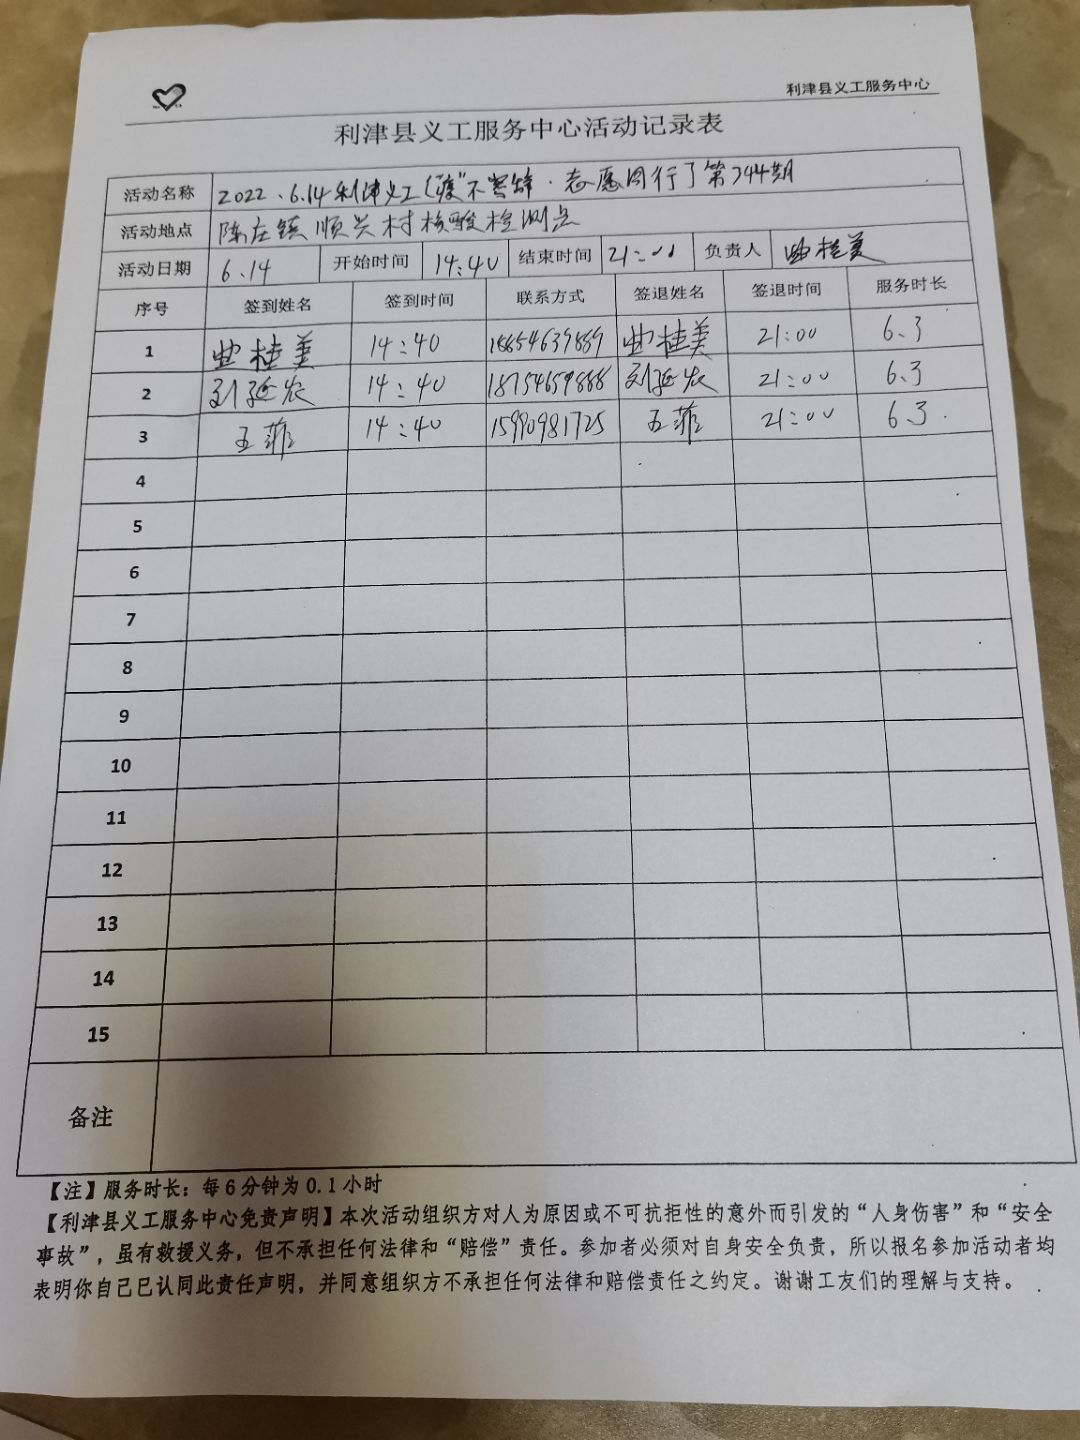 利津县义工服务中心
利津县义工服务中心活动记录表
活动名称 2022.6.14利津义工 不 ·志愿同行 第344期
活动地点 陈庄镇顺兴村核酸检测点
活动日期 6.14 开始时间 14:40 结束时间 21:00 负责人 曲桂美
序号 签到姓名 签到时间 联系方式 签退姓名 签退时间 服务时长
1 曲桂美 14:40 18654639889 曲桂美 21:00 6.3
2 刘延农 14:40 18754659888 刘延农 21:00 6.3
3 王菲 14:40 15990981725 王菲 21:00 6.3.
4
5
6
7
8
9
10
11
12
13
14
15
备注
【注】服务时长：每6分钟为0.1小时
【利津县义工服务中心免责声明】本次活动组织方对人为原因或不可抗拒性的意外而引发的“人身伤害”和“安全
事故”，虽有救援义务，但不承担任何法律和“赔偿”责任。参加者必须对自身安全负责，所以报名参加活动者均
表明你自己已认同此责任声明，并同意组织方不承担任何法律和赔偿责任之约定。谢谢工友们的理解与支持。